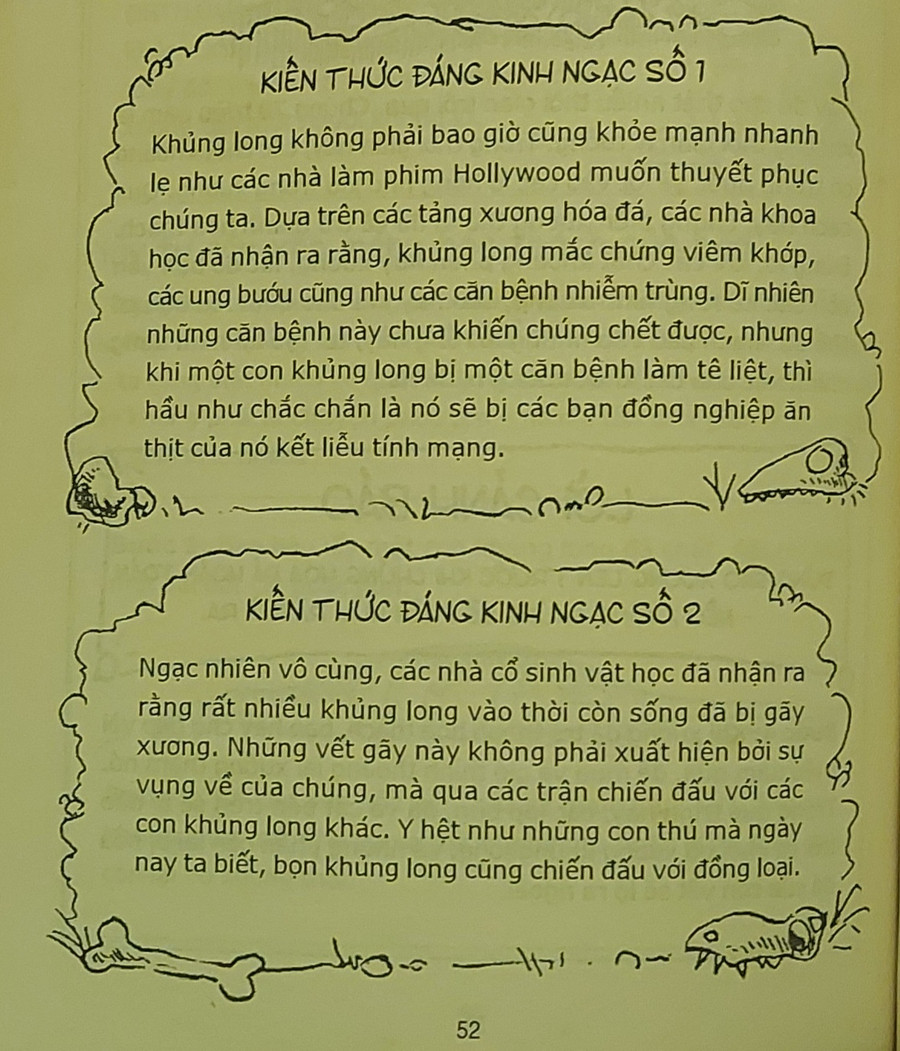 KIẾN THỨC ĐÁNG KINH NGẠC SỐ 1
Khủng long không phải bao giờ cũng khỏe mạnh nhanh
lẹ như các nhà làm phim Hollywood muốn thuyết phục
chúng ta. Dựa trên các tảng xương hóa đá, các nhà khoa
học đã nhận ra rằng, khủng long mắc chứng viêm khớp,
các ung bướu cũng như các căn bệnh nhiễm trùng. Dĩ nhiên
những căn bệnh này chưa khiến chúng chết được, nhưng
khi một con khủng long bị một căn bệnh làm tê liệt, thì
hầu như chắc chắn là nó sẽ bị các bạn đồng nghiệp ăn
thịt của nó kết liễu tính mạng.
KIẾN THỨC ĐÁNG KINH NGẠC SỐ 2
Ngạc nhiên vô cùng, các nhà cổ sinh vật học đã nhận ra
rằng rất nhiều khủng long vào thời còn sống đã bị gãy
xương. Những vết gãy này không phải xuất hiện bởi sự
vụng về của chúng, mà qua các trận chiến đấu với các
con khủng long khác. Y hệt như những con thú mà ngày
nay ta biết, bọn khủng long cũng chiến đấu với đồng loại.
52